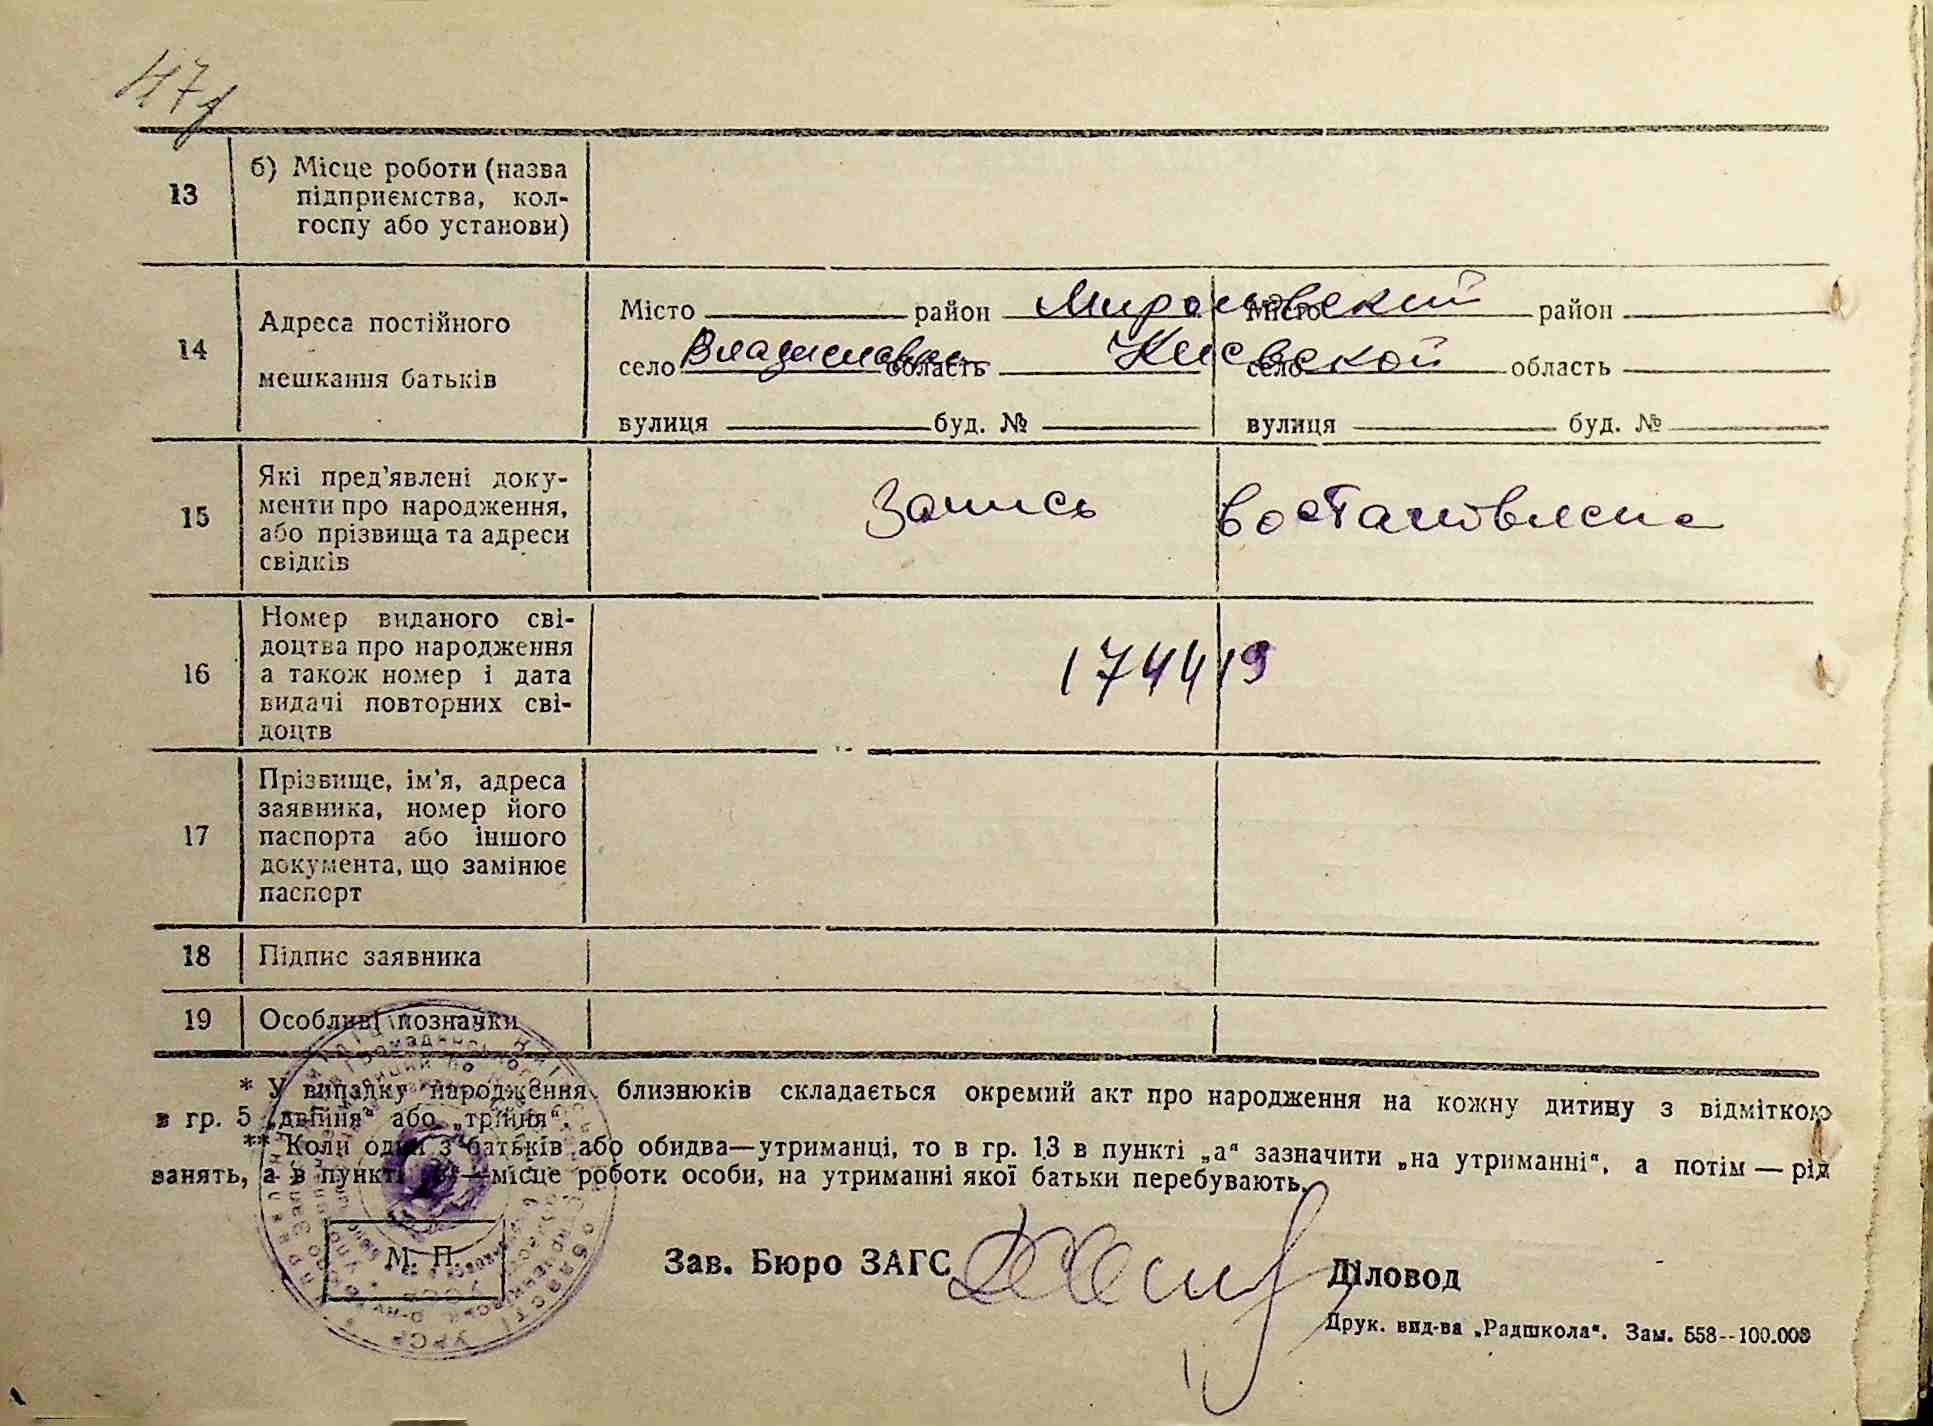 13
б) Місце роботи (назва
підприємства, кол-
госпу або установи)
14
Адреса постійного
мешкання батьків
Місто район Мироновский Місто район
село Владиславка область Киевской село область
вулиця буд. № вулиця буд. №
15
Які пред'явлені доку-
менти про народження,
або прізвища та адреси
свідків
Запись востановлена
16
Номер виданого сві-
доцтва про народження
а також номер і дата
видачі повторних сві-
доцтв
174419
17
Прізвище, ім'я, адреса
заявника, номер його
паспорта або іншого
документа, що замінює
паспорт
18 Підпис заявника
19 Особливі позначки
* У випадку народження близнюків складається окремий акт про народження на кожну дитину з відміткою
в гр. 5 „двійня“ або „трійня“.
** Коли один з батьків або обидва—утриманці, то в гр. 13 в пункті „а“ зазначити „на утриманні“, а потім — рід
занять, а в пункті „б“—місце роботи особи, на утриманні якої батьки перебувають.
М. П.
Зав. Бюро ЗАГС
Діловод
Друк. вид-ва „Радшкола“. Зам. 558--100.000